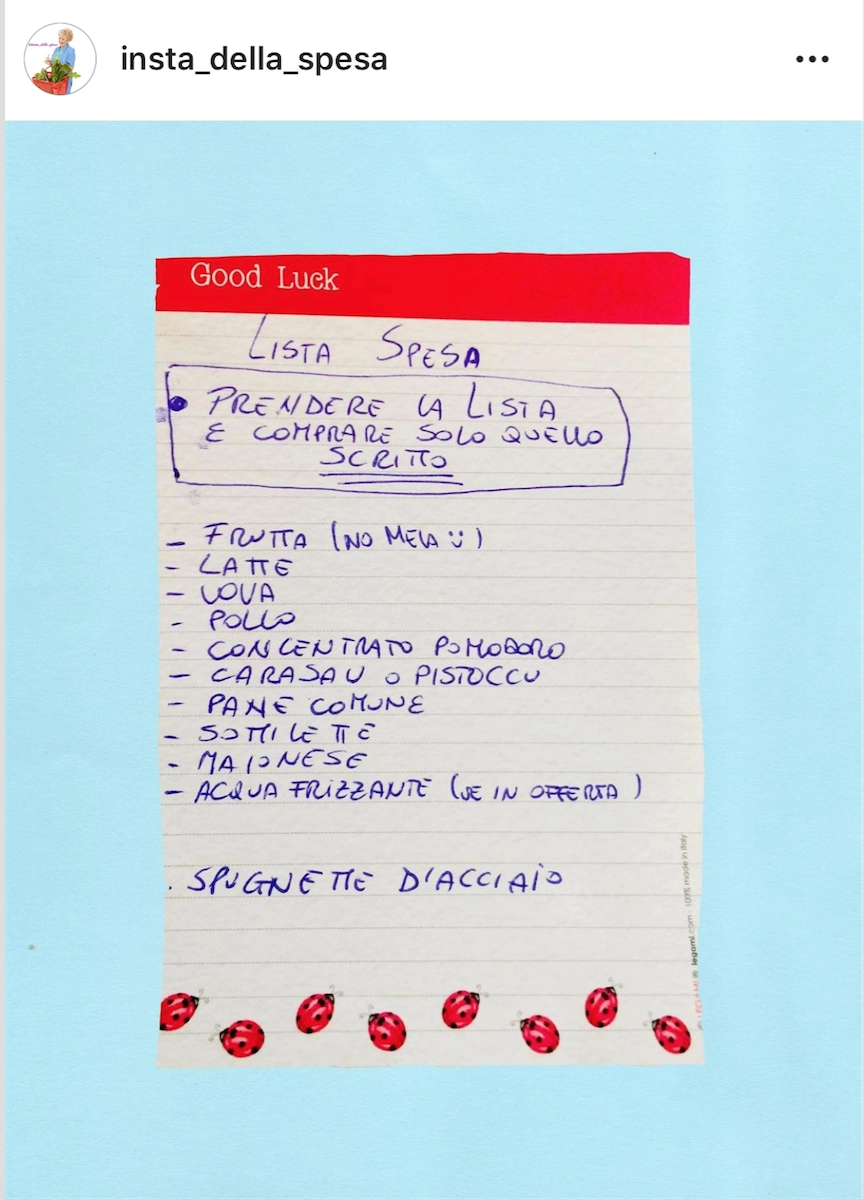 insta_della_spesa
Good Luck
LISTA SPESA
• PRENDERE LA LISTA
E COMPRARE SOLO QUELLO
SCRITTO
- FRUTTA (NO MELA ü)
- LATTE
- UOVA
- POLLO
- CONCENTRATO POMODORO
- CARASAU O PISTOCCU
- PANE COMUNE
- SOTTILETTE
- MAIONESE
- ACQUA FRIZZANTE (SE IN OFFERTA)
. SPUGNETTE D'ACCIAIO
LEGAMI® legami.com - 100% made in Italy